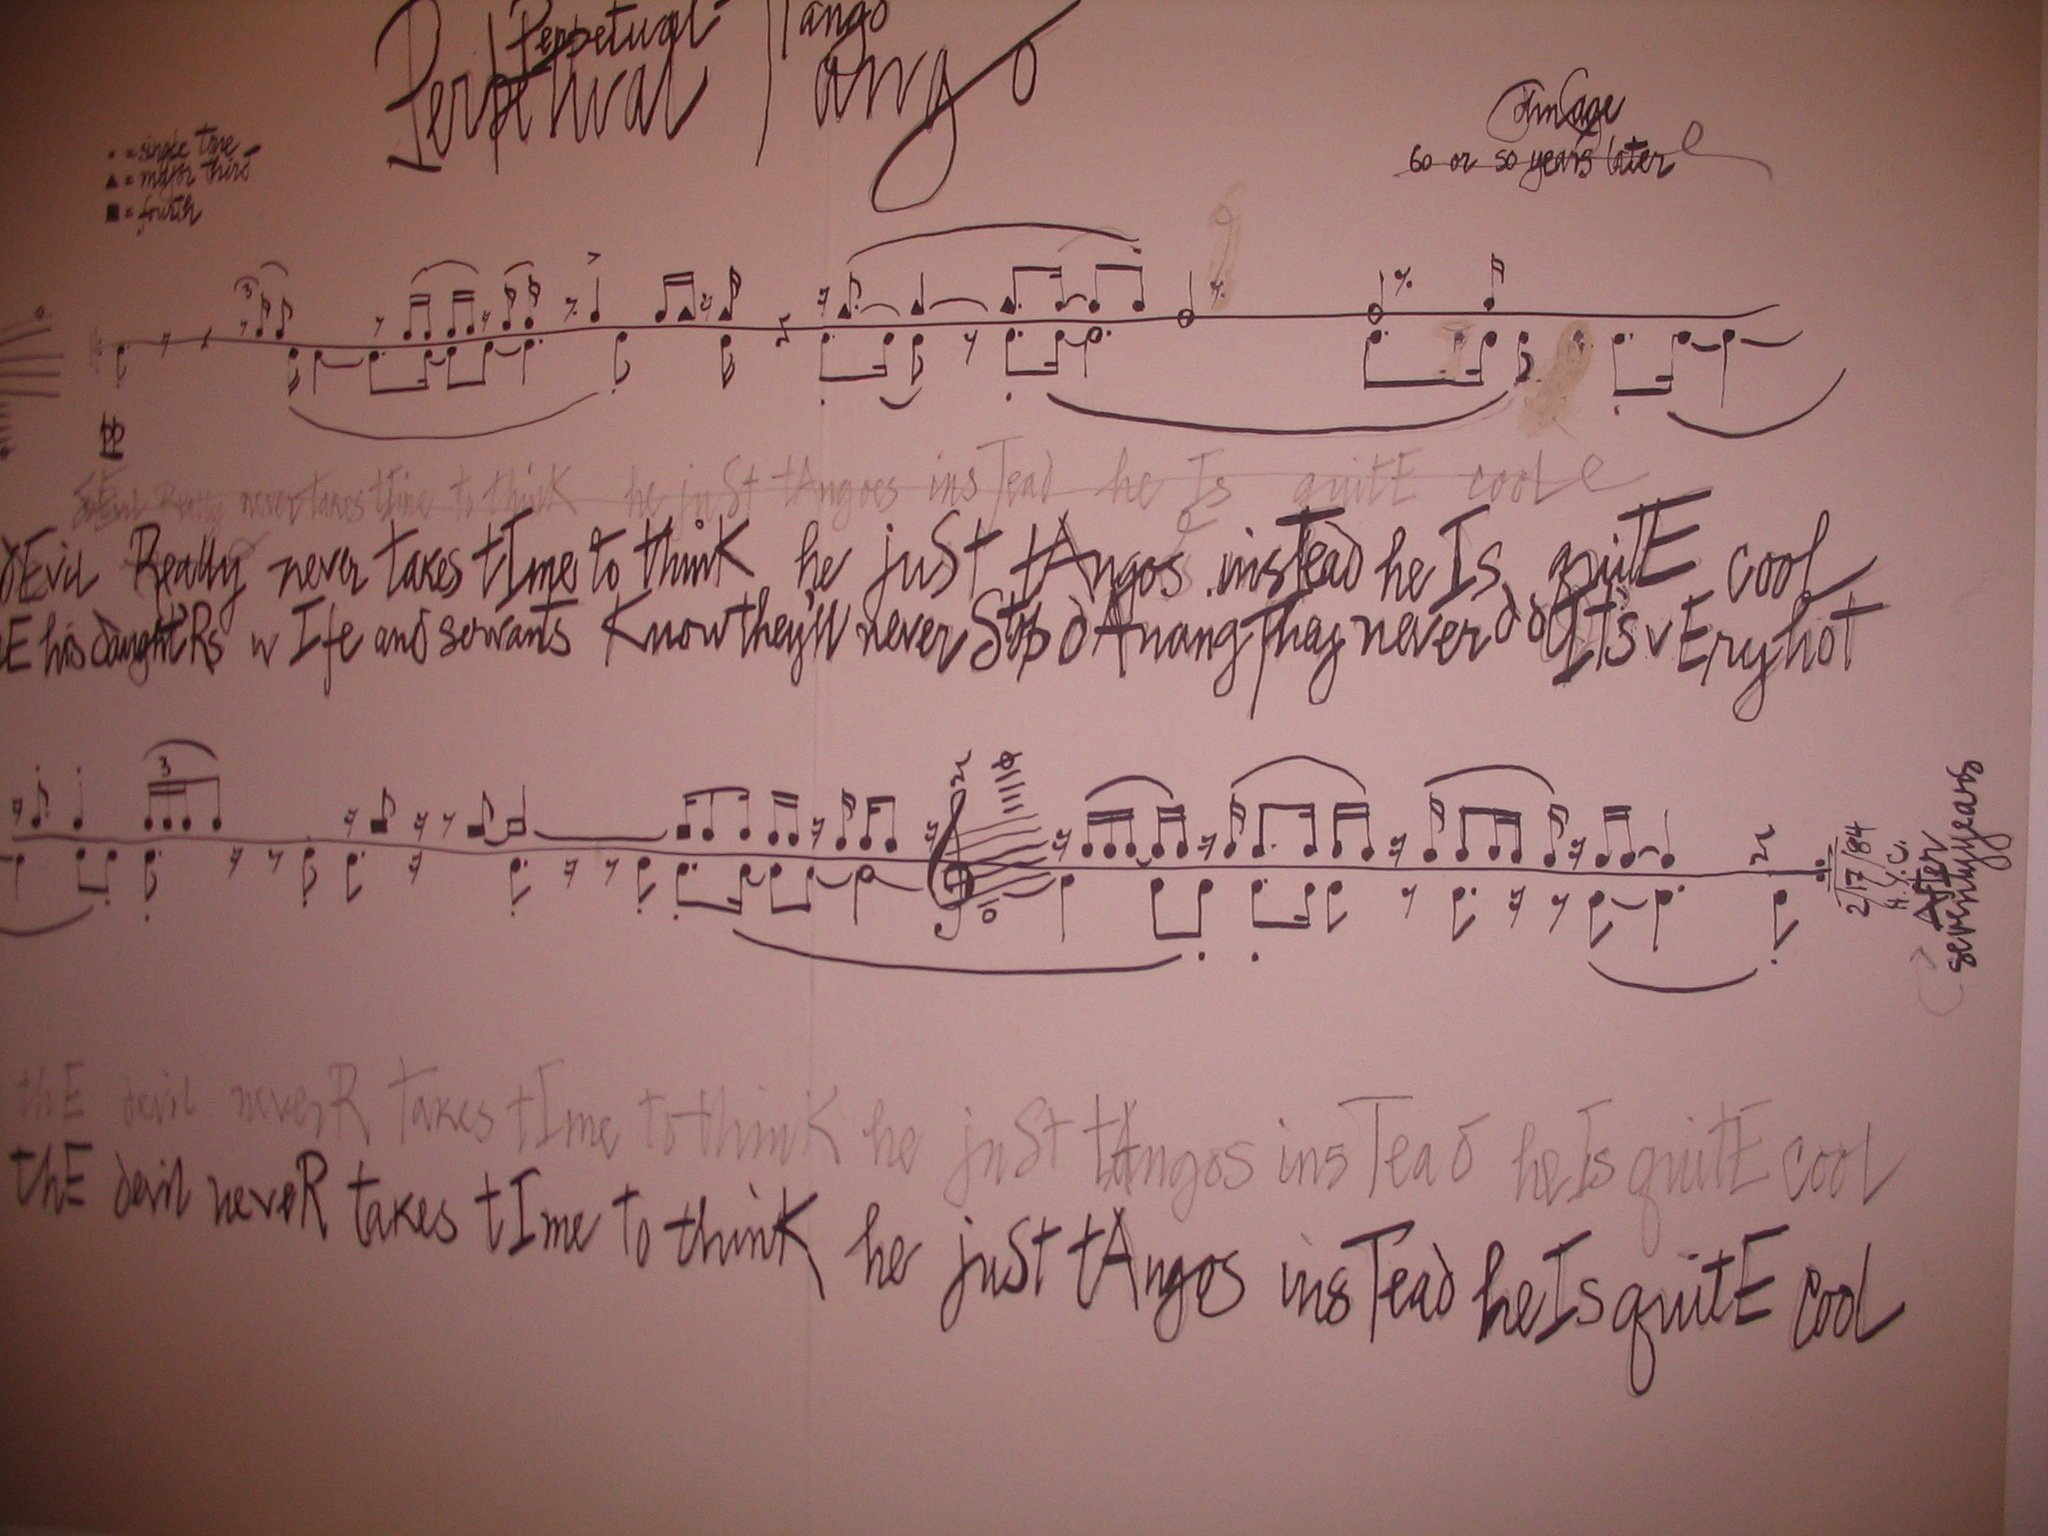 Perpetual Tango
Perpetual Tango
John Cage
60 or 50 years later
. = single tone
▲ = major third
■ = fourth
3
pp
never takes tIme to thinK he juSt tAngoes insTead he Is quitE cooL
dEvil Really never takes tIme to thinK he juSt tAngos insTead he Is quitE cooL
E his daughteRs wIfe and servants Know they'll never Stop It's vEry hot
3
2/17/84
N.Y.C.
After
seventy years
thE devil neveR takes tIme to thinK he juSt tAngos insTead he Is quitE cooL
thE devil neveR takes tIme to thinK he juSt tAngos insTead he Is quitE cooL